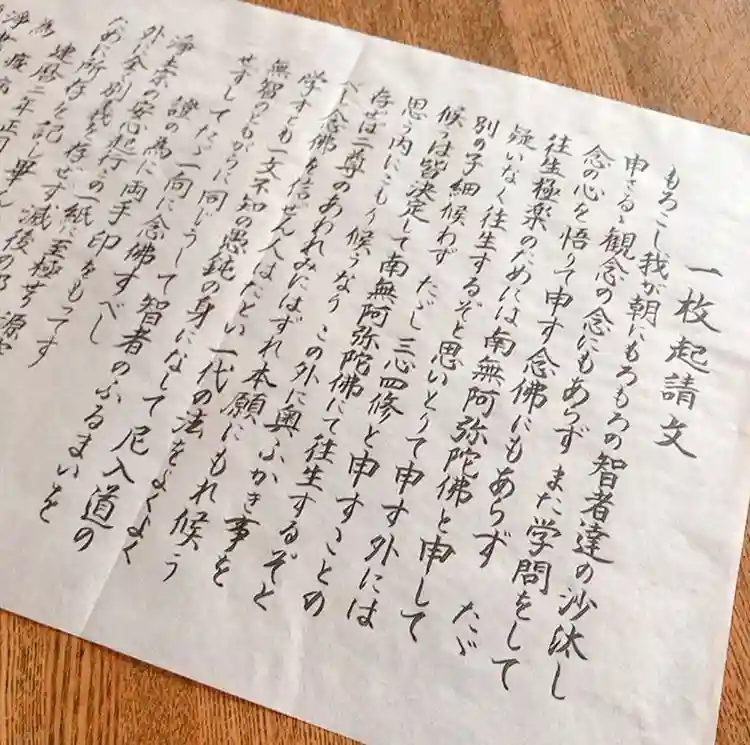 一枚起請文
もろこし我が朝にもろもろの智者達の沙汰し
申さるゝ観念の念にもあらず また学問をして
念の心を悟りて申す念佛にもあらず たゞ
往生極楽のためには南無阿弥陀佛と申して
疑いなく往生するぞと思いとりて申す外には
別の子細候わず たゞし三心四修と申すことの
候うは皆決定して南無阿弥陀佛にて往生するぞと
思う内にこもり候うなり この外に奥ふかき事を
存ぜば二尊のあわれみにはずれ本願にもれ候う
べし念佛を信ぜん人はたとい一代の法をよくよく
学すとも一文不知の愚鈍の身になして尼入道の
無智のともがらに同じうして智者のふるまいを
せずしてたゞ一向に念佛すべし
證の為に両手印をもってす
浄土宗の安心起行この一紙に至極せり 源空
外に全く別義を存ぜず滅後の邪
ために所存を記し畢んぬ
為 建暦二年正月